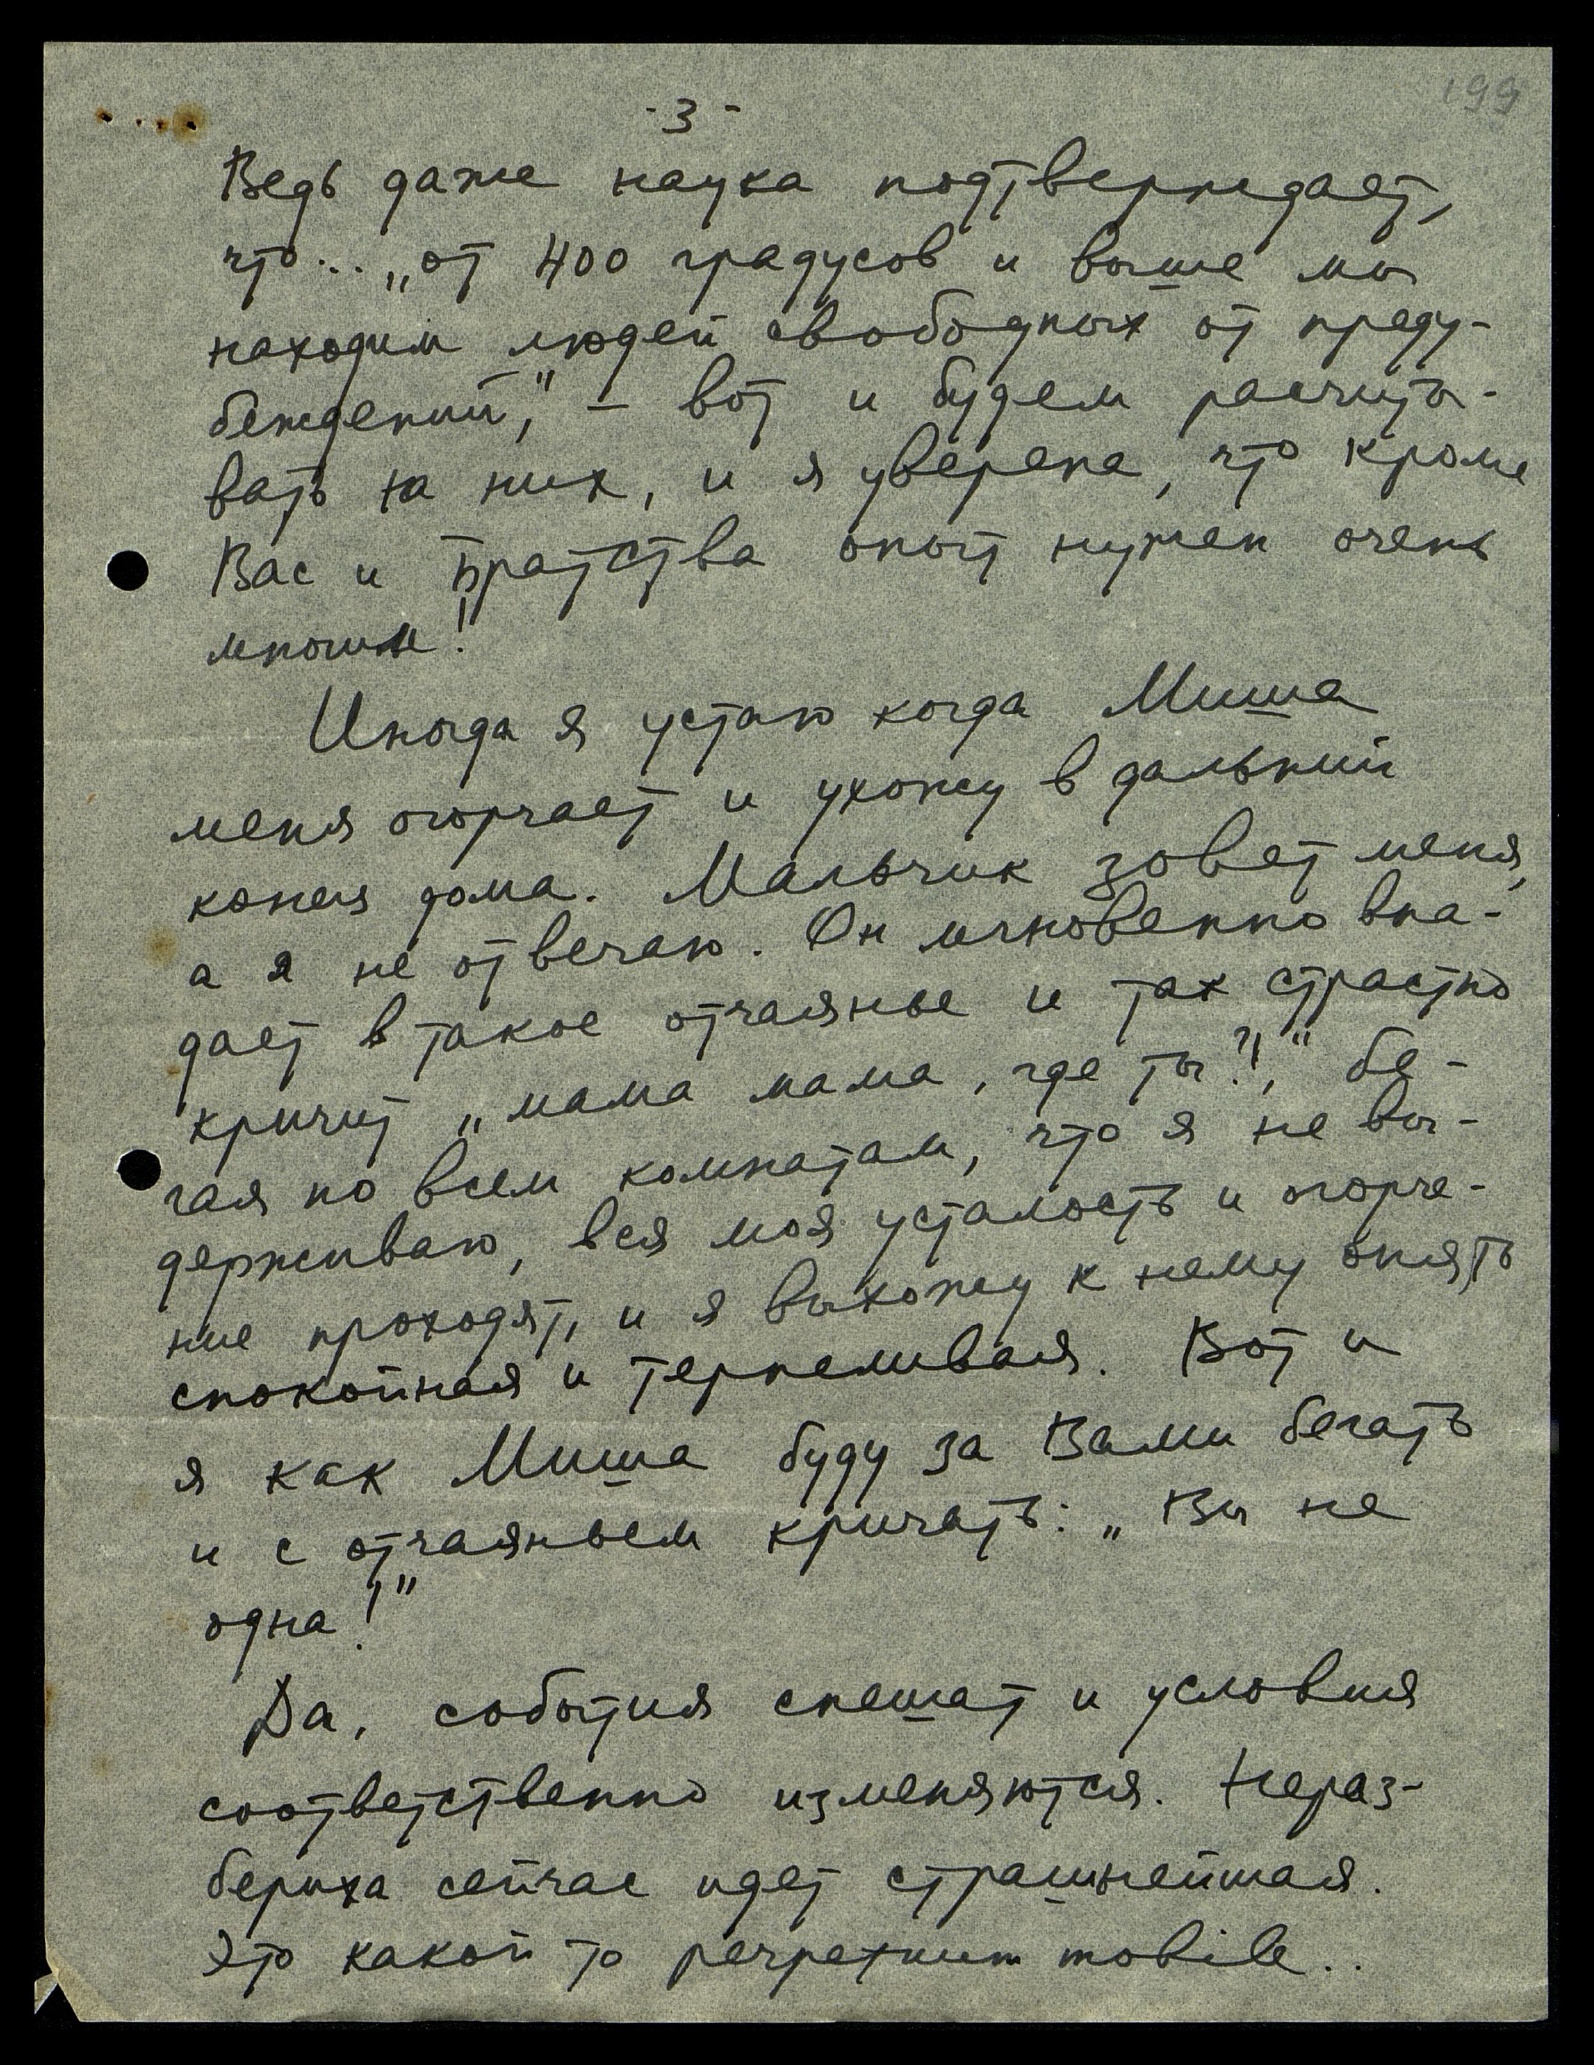 199
- 3 -
Ведь даже наука подтверждает,
что... „от 400 градусов и выше мы
находим людей свободных от преду-
беждений“, – вот и будем расчиты-
вать на них, и я уверена, что кроме
Вас и Братства опыт нужен очень
многим!
Иногда я устаю когда Миша
меня огорчает и ухожу в дальний
конец дома. Мальчик зовет меня,
а я не отвечаю. Он мгновенно впа-
дает в такое отчаянье и так страстно
кричит „мама мама, где ты?!“, бе-
гая по всем комнатам, что я не вы-
держиваю, вся моя усталость и огорче-
ние проходят, и я выхожу к нему опять
спокойная и терпеливая. Вот и
я как Миша буду за Вами бегать
и с отчаяньем кричать: „Вы не
одна!“
Да, события спешат и условия
соответственно изменяются. Нераз-
бериха сейчас идет страшнейшая.
Это какой то perpetuum mobile..